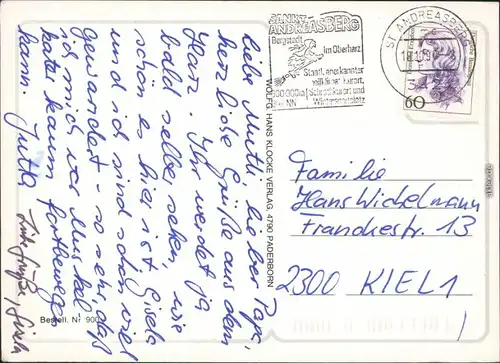 Liebe Mutti, lieber Papa,
herzliche Grüße aus dem
Harz. Ihr werdet ja
bald selber sehen, wie
schön es hier ist. Gisela
und ich sind schon viel
gewandert - so sehr, daß
ich mich vor Muskel-
kater kaum fortbewegen
kann. Jutta
Liebe Grüße, Gisela
Bestell. Nr. 900
WOLFGANG HANS KLOCKE VERLAG, 4790 PADERBORN
SANKT
ANDREASBERG
Bergstadt
im Oberharz
Staatl. anerkannter
heilklimat. Kurort,
Schrothkurort und
Wintersportplatz
ST ANDREASBERG
60
Familie
Hans Wichelmann
Franckestr. 13
2300 KIEL 1